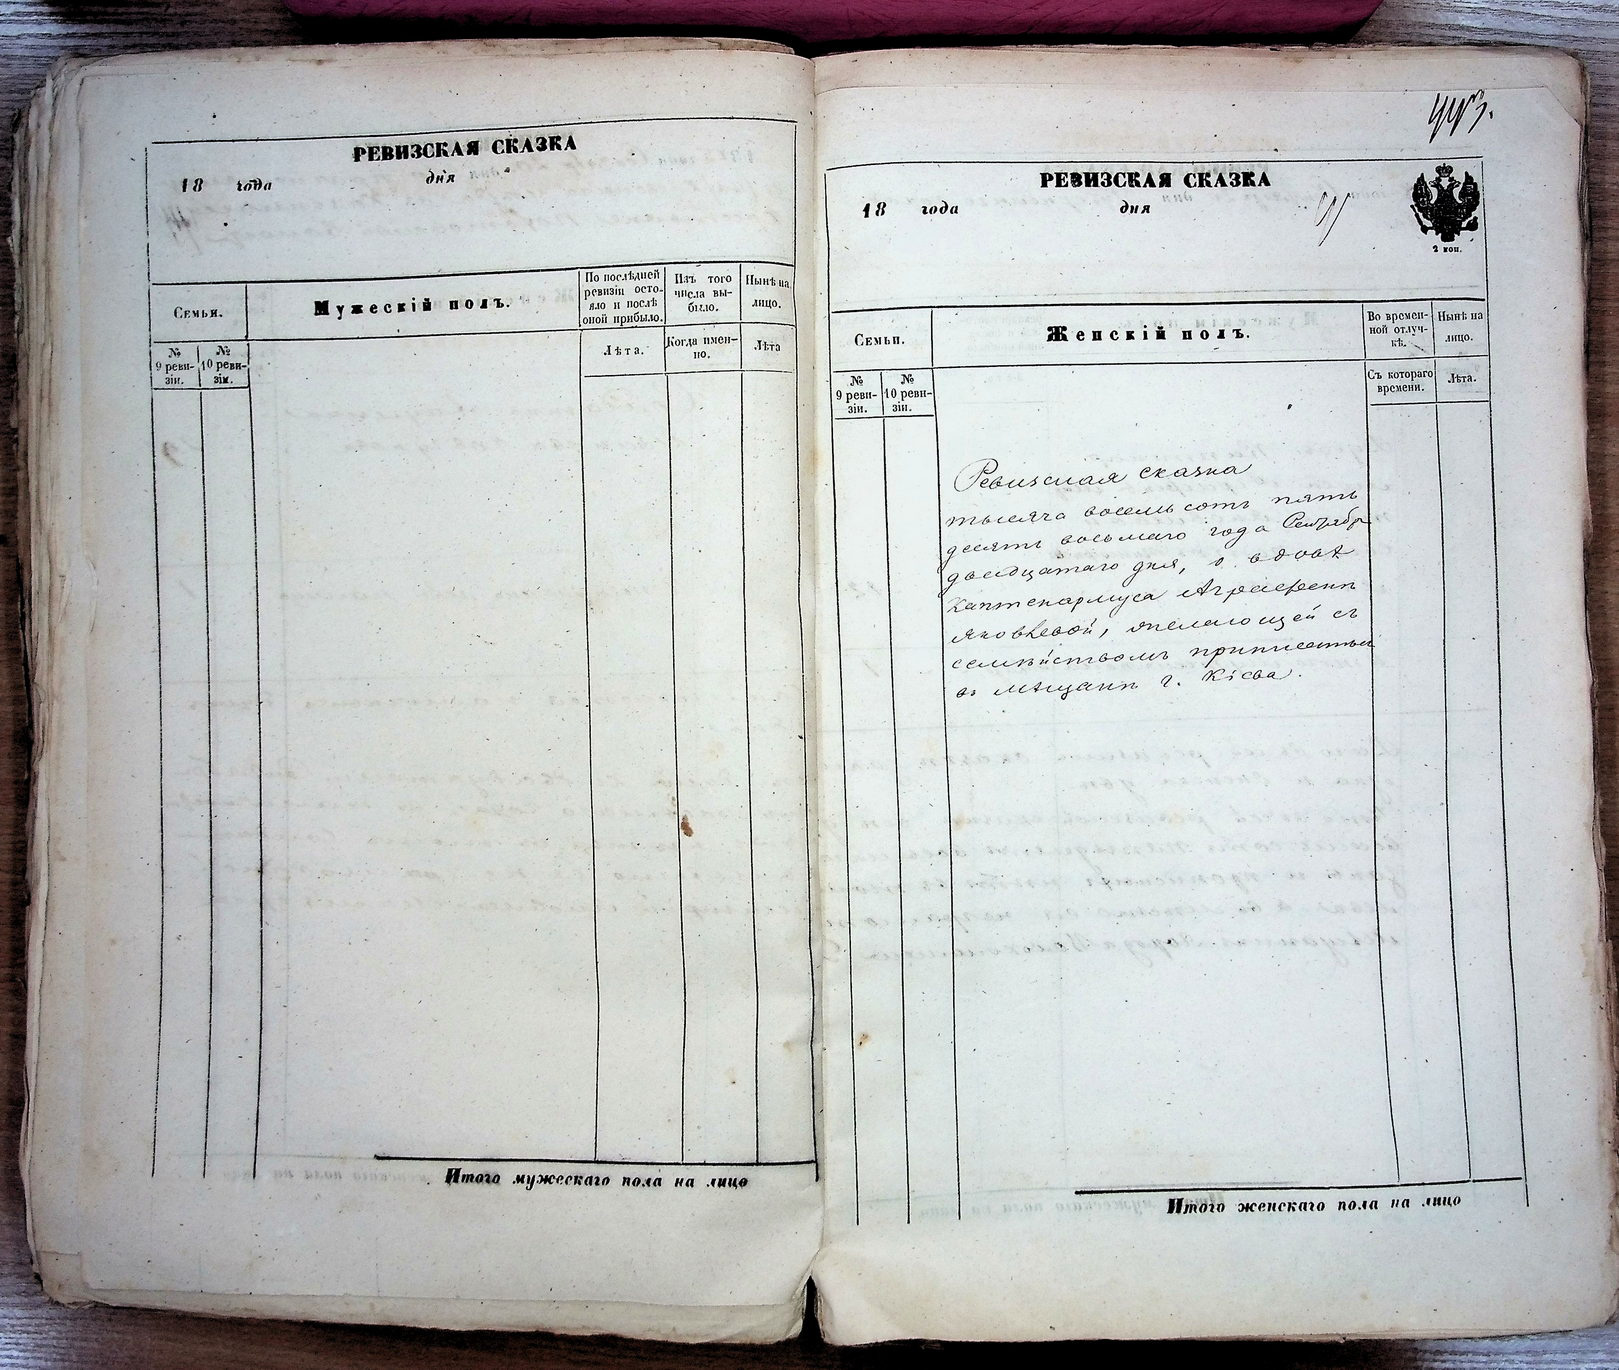 РЕВИЗСКАЯ СКАЗКА
18 года дня
Семьи.
Мужескій полъ.
По послѣдней
ревизіи состо-
яло и послѣ
оной прибыло.
Изъ того
числа вы-
было.
Нынѣ на
лицо.
№
9 реви-
зіи.
№
10 реви-
зіи.
Лѣта.
Когда имен-
но.
Лѣта
Итого мужескаго пола на лицо
РЕВИЗСКАЯ СКАЗКА
18 года дня
2 коп.
Семьи.
Женскій полъ.
Во времен-
ной отлуч-
кѣ.
Нынѣ на
лицо.
№
9 реви-
зіи.
№
10 реви-
зіи.
Съ котораго
времени.
Лѣта.
Ревизская сказка
тысяча восемьсотъ пять
десятъ восьмаго года Сентября
двадцатаго дня, о вдовѣ
Каптенармуса Аграфенѣ
Яковлевой, желающей съ
семѣйствомъ приписаться
въ мѣщане г. Кіева.
Итого женскаго пола на лицо